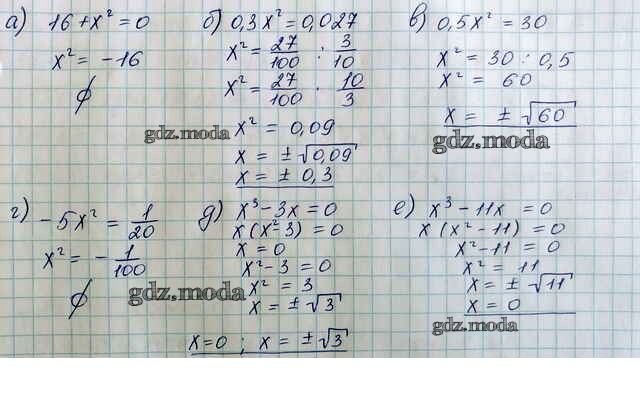 а) 16 + x² = 0
x² = -16
∅
б) 0,3x² = 0,027
x² = 27/100 : 3/10
x² = 27/100 · 10/3
x² = 0,09
x = ± √0,09
x = ± 0,3
в) 0,5x² = 30
x² = 30 : 0,5
x² = 60
x = ± √60
gdz.moda
gdz.moda
г) -5x² = 1/20
x² = - 1/100
∅
д) x³ - 3x = 0
x(x² - 3) = 0
x = 0
x² - 3 = 0
x² = 3
x = ± √3
x = 0 ; x = ± √3
е) x³ - 11x = 0
x (x² - 11) = 0
x² - 11 = 0
x² = 11
x = ± √11
x = 0
gdz.moda
gdz.moda